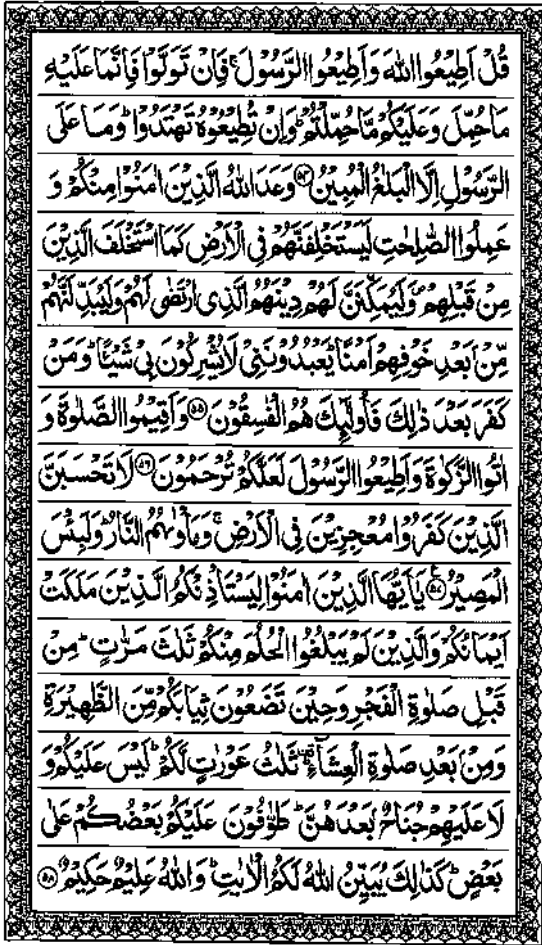 قُلْ اَطِيْعُوا اللّٰهَ وَ اَطِيْعُوا الرَّسُوْلَ ۚ فَاِنْ تَوَلَّوْا فَاِنَّمَا عَلَيْهِ
مَا حُمِّلَ وَ عَلَيْكُمْ مَّا حُمِّلْتُمْ ؕ وَاِنْ تُطِيْعُوْهُ تَهْتَدُوْا ؕ وَمَا عَلَى
الرَّسُوْلِ اِلَّا الْبَلٰغُ الْمُبِيْنُ ﴿۵۴﴾ وَعَدَ اللّٰهُ الَّذِيْنَ اٰمَنُوْا مِنْكُمْ وَ
عَمِلُوا الصّٰلِحٰتِ لَيَسْتَخْلِفَنَّهُمْ فِى الْاَرْضِ كَمَا اسْتَخْلَفَ الَّذِيْنَ
مِنْ قَبْلِهِمْ ۪ وَلَيُمَكِّنَنَّ لَهُمْ دِيْنَهُمُ الَّذِى ارْتَضٰى لَهُمْ وَلَيُبَدِّلَنَّهُمْ
مِّنْۢ بَعْدِ خَوْفِهِمْ اَمْنًا ؕ يَعْبُدُوْنَنِىْ لَا يُشْرِكُوْنَ بِىْ شَيْـًٔا ؕ وَمَنْ
كَفَرَ بَعْدَ ذٰلِكَ فَاُولٰٓئِكَ هُمُ الْفٰسِقُوْنَ ﴿۵۵﴾ وَ اَقِيْمُوا الصَّلٰوةَ وَ
اٰتُوا الزَّكٰوةَ وَ اَطِيْعُوا الرَّسُوْلَ لَعَلَّكُمْ تُرْحَمُوْنَ ﴿۵۶﴾ لَا تَحْسَبَنَّ
الَّذِيْنَ كَفَرُوْا مُعْجِزِيْنَ فِى الْاَرْضِ ۚ وَمَاْوٰىهُمُ النَّارُ ؕ وَلَبِئْسَ
الْمَصِيْرُ ﴿۵۷﴾ يٰۤاَيُّهَا الَّذِيْنَ اٰمَنُوْا لِيَسْتَاْذِنْكُمُ الَّذِيْنَ مَلَكَتْ
اَيْمَانُكُمْ وَالَّذِيْنَ لَمْ يَبْلُغُوا الْحُلُمَ مِنْكُمْ ثَلٰثَ مَرّٰتٍ ؕ مِنْ
قَبْلِ صَلٰوةِ الْفَجْرِ وَحِيْنَ تَضَعُوْنَ ثِيَابَكُمْ مِّنَ الظَّهِيْرَةِ
وَمِنْۢ بَعْدِ صَلٰوةِ الْعِشَآءِ ؕ۫ ثَلٰثُ عَوْرٰتٍ لَّكُمْ ؕ لَيْسَ عَلَيْكُمْ وَ
لَا عَلَيْهِمْ جُنَاحٌۢ بَعْدَهُنَّ ؕ طَوّٰفُوْنَ عَلَيْكُمْ بَعْضُكُمْ عَلٰى
بَعْضٍ ؕ كَذٰلِكَ يُبَيِّنُ اللّٰهُ لَكُمُ الْاٰيٰتِ ؕ وَاللّٰهُ عَلِيْمٌ حَكِيْمٌ ﴿۵۸﴾